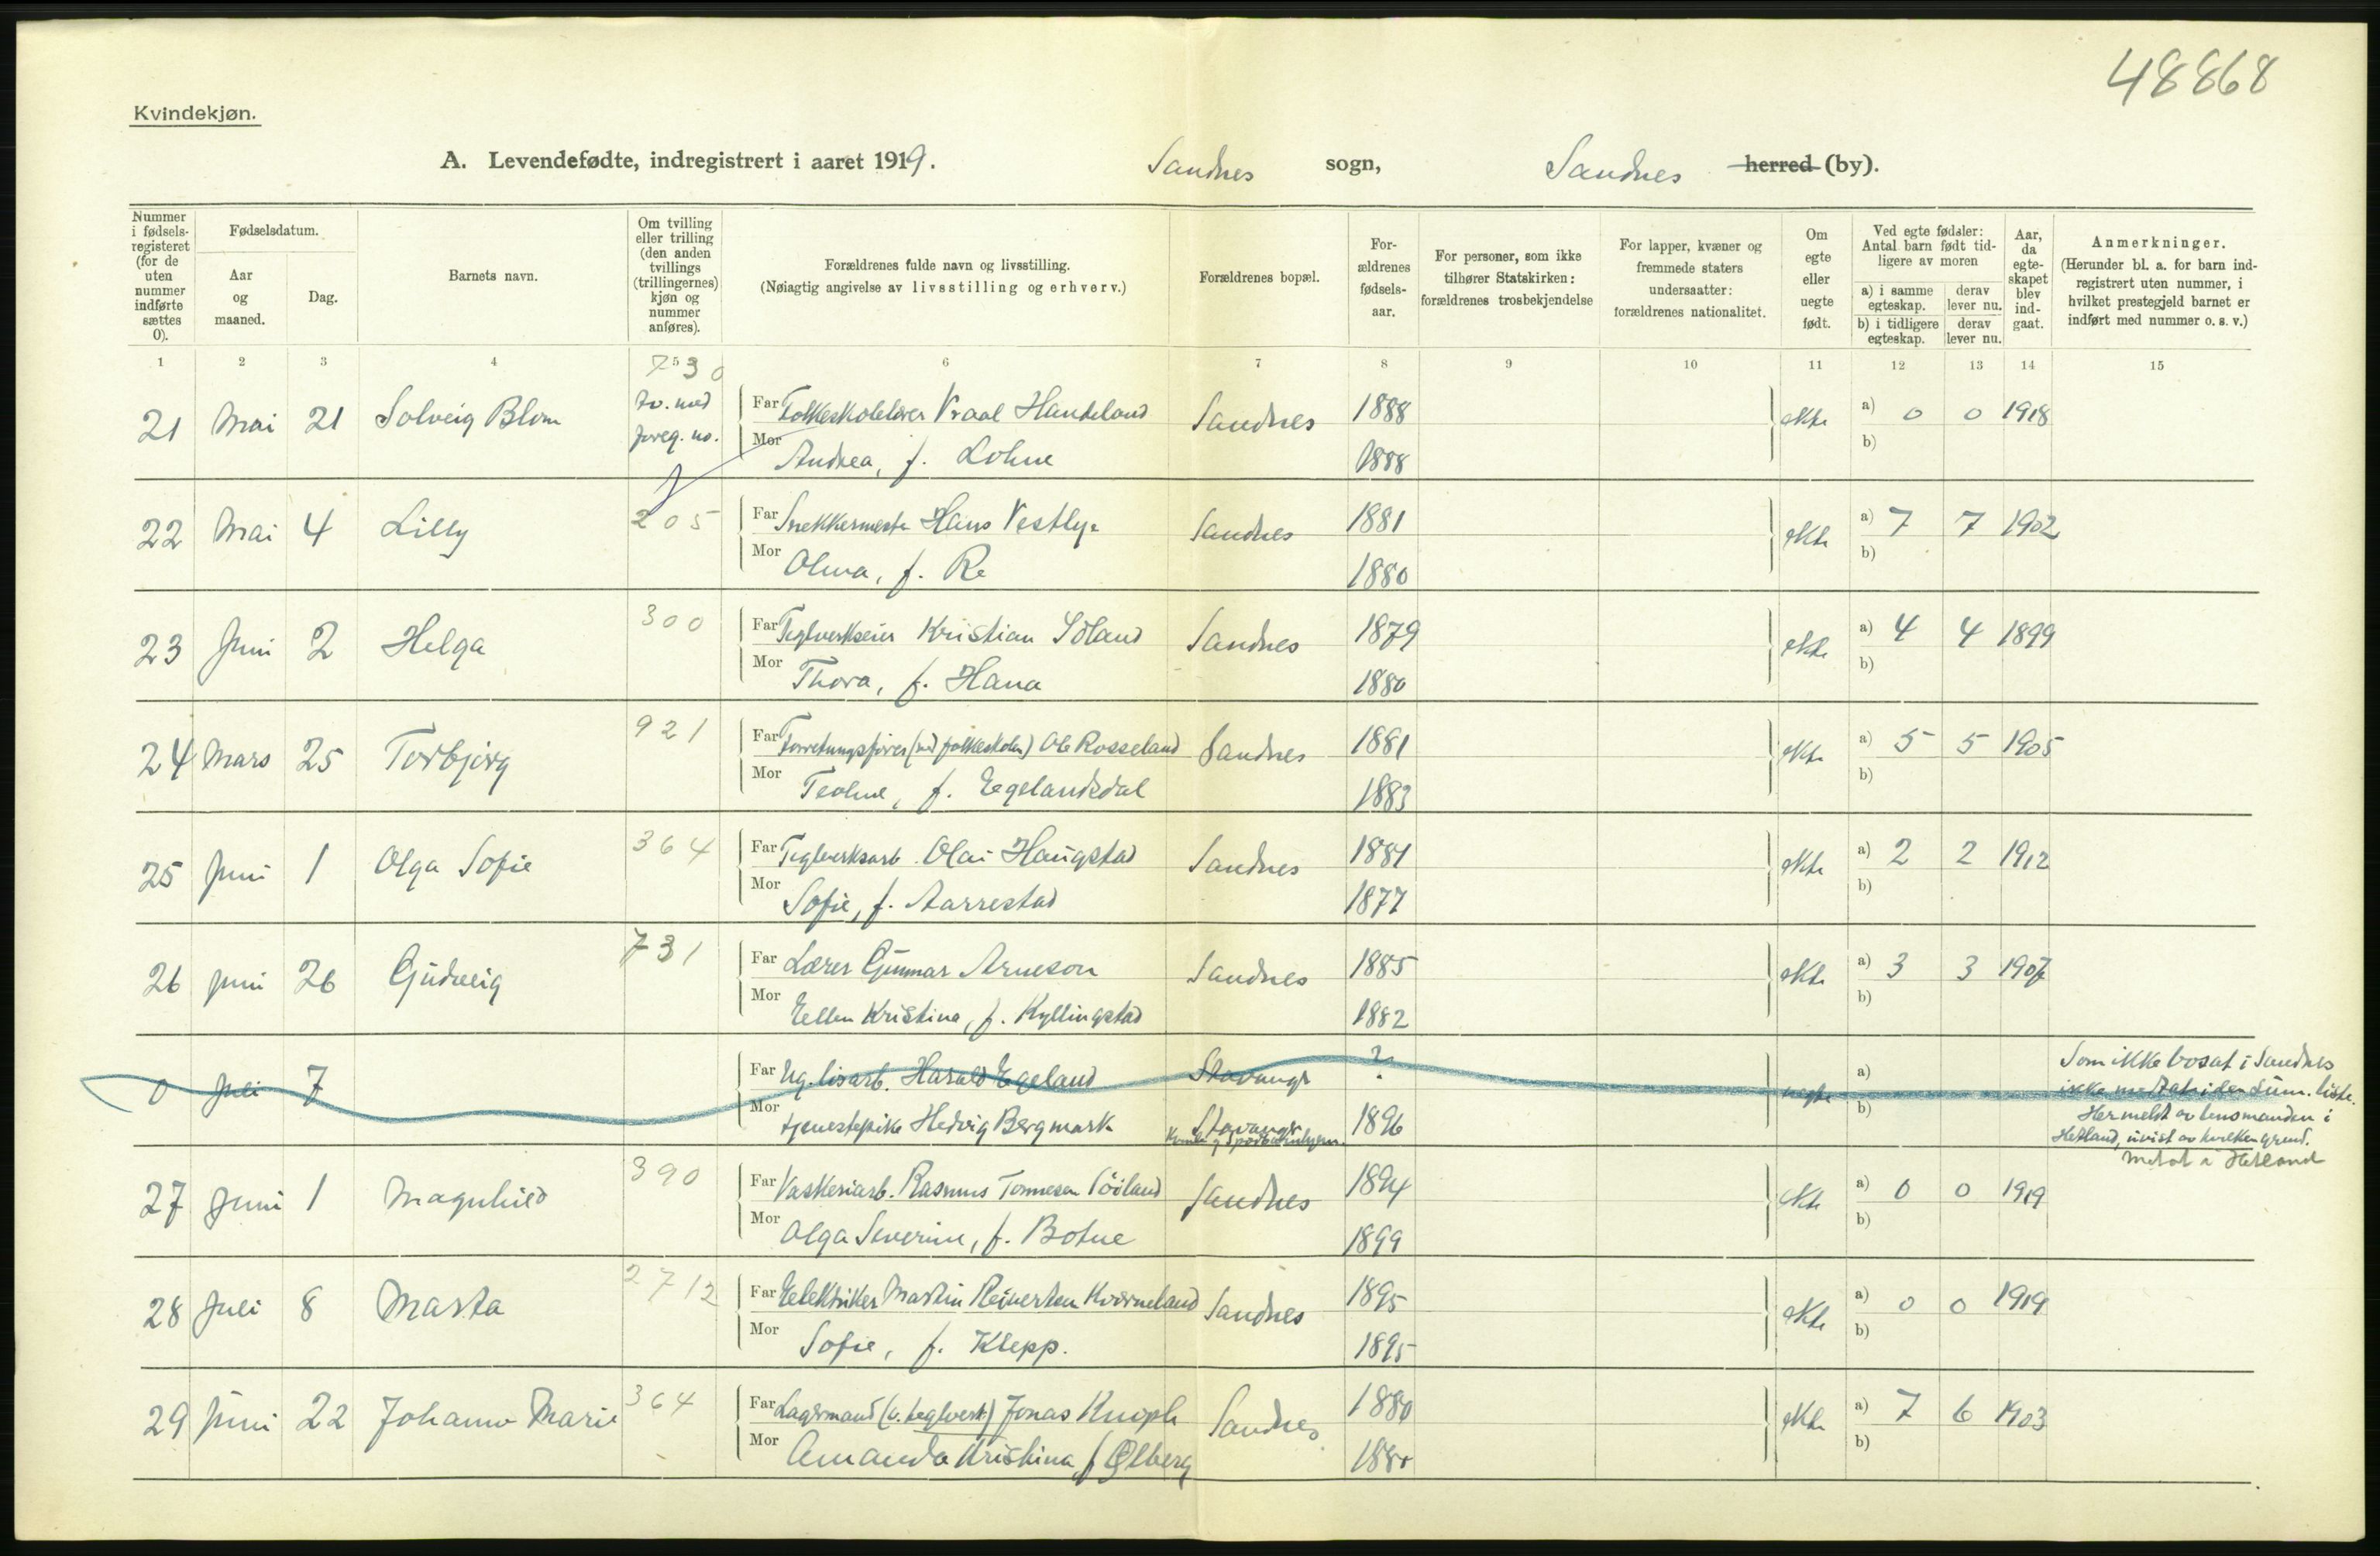 48868
Kvindekjøn.
A. Levendefødte, indregistrert i aaret 1919. Sandnes sogn, Sandnes herred (by).
Nummer i fødsels-registeret (for de uten nummer indførte sættes 0).
Fødselsdatum.
Aar og maaned.
Dag.
Barnets navn.
Om tvilling eller trilling (den anden tvillings (trillingernes) kjøn og nummer anføres).
Forældrenes fulde navn og livsstilling.
(Nøiagtig angivelse av livsstilling og erhverv.)
Forældrenes bopæl.
For-ældrenes fødsels-aar.
For personer, som ikke tilhører Statskirken: forældrenes trosbekjendelse
For lapper, kvæner og fremmede staters undersaatter: forældrenes nationalitet.
Om egte eller uegte født.
Ved egte fødsler: Antal barn født tid-ligere av moren
a) i samme egteskap. derav lever nu.
b) i tidligere egteskap. derav lever nu.
Aar, da egte-skapet blev ind-gaat.
Anmerkninger.
(Herunder bl. a. for barn ind-registrert uten nummer, i hvilket prestegjeld barnet er indført med nummer o. s. v.)
1 2 3 4 5 6 7 8 9 10 11 12 13 14 15
730
21 Mai 21 Solveig Blom tv. med foreg. no. Far Folkeskolelærer Vraal Handeland Sandnes 1888 ekte a) 0 0 1918
Mor Andrea, f. Lohne 1888 b)
22 Mai 4 Lilly 205 Far Snekkermester Hans Vestly Sandnes 1881 ekte a) 7 7 1902
Mor Olena, f. Re 1880 b)
23 Juni 2 Helga 300 Far Teglverkseier Kristian Söland Sandnes 1879 ekte a) 4 4 1899
Mor Thora, f. Hana 1880 b)
24 Mars 25 Torbjörg 921 Far Forretningsfører (ved folkeskolen) Ole Rosseland Sandnes 1881 ekte a) 5 5 1905
Mor f. Egelandsdal 1883 b)
25 Juni 1 Olga Sofie 364 Far Teglverksarb. Olai Haugstad Sandnes 1881 ekte a) 2 2 1912
Mor Sofie, f. Aarrestad 1877 b)
26 Juni 26 Gudveig 731 Far Lærer Gunnar Arneson Sandnes 1885 ekte a) 3 3 1907
Mor Ellen Kristine, f. Kyllingstad 1882 b)
0 Juli 7 Far Harald Egeland Stavanger ? uegte a)
Mor tjenestepike Hedvig Bergmark Stavanger 1896 b)
Som ikke bosat i Sandnes
ikke medtat i den sum. liste.
Her meldt av lensmanden i
Hetland, uvist av hvilken grund.
Medtat i Hetland
27 Juni 1 Magnhild 390 Far Vaskeriarb. Rasmus Tonnesen Sööland Sandnes 1894 ekte a) 0 0 1919
Mor Olga Severine, f. Botne 1899 b)
28 Juli 8 Marta 2712 Far Elektriker Martin Reinertsen Kverneland Sandnes 1895 ekte a) 0 0 1919
Mor Sofie, f. Klepp. 1895 b)
29 Juni 22 Johanne Marie 364 Far Lagermand (v. teglverk) Jonas Knoph Sandnes 1880 ekte a) 7 6 1903
Mor Amanda Kristina f Ølberg 1880 b)